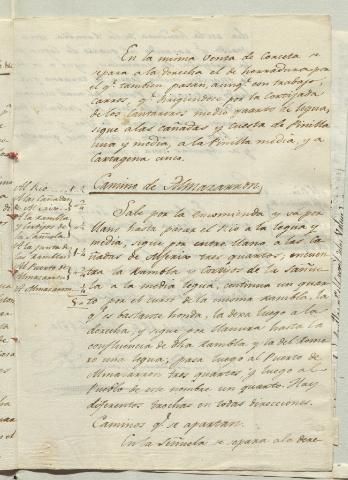 En la misma Venta de Corveta se
separa a la derecha el de herradura, por
el q.e tambien pasan, aunq.e con trabajo,
carros, q.e dirigiendose por la Cortijada
de los Cantarros medio quarto de legua,
sigue a las cañadas y cuesta de Pinilla
una y media, a la Pinilla media, y a
Cartagena cinco.
Camino de Almazarron
Sale por la encomienda y va por
llano hasta pasar el Rio a la legua y
media, sigue por entre llano a las Ca-
ñadas de tres quartos, encuen-
tra la Rambla y Cortijos de la Señue-
la a la media legua, continua un quar-
to por el curso de la misma rambla, la
q.e es bastante honda, la dexa luego a la
derecha, y sigue por llanura hasta la
confluencia de dha Rambla y la del Rome-
ro una legua, pasa luego al Puerto de
Almazarron tres quartos y luego al
Pueblo de este nombre un quarto. Hay
diferentes trochas en todas direcciones.
Caminos q.e se apartan.
En la Señuela se separa a la dere-
Al Rio
A las Cañadas
A la Rambla
y cortijos de
la Señuela
A la junta de
las Ramblas
Al Puerto de
Almazarron
A Almazarron